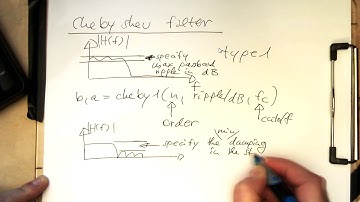 Chebyshev filter
|H(f)|
specify
max passband
ripple in dB
type 1
f
b,a = cheby1(n, ripple/dB, fc)
order
cutoff
|H(f)|
min
specify the damping
in the st